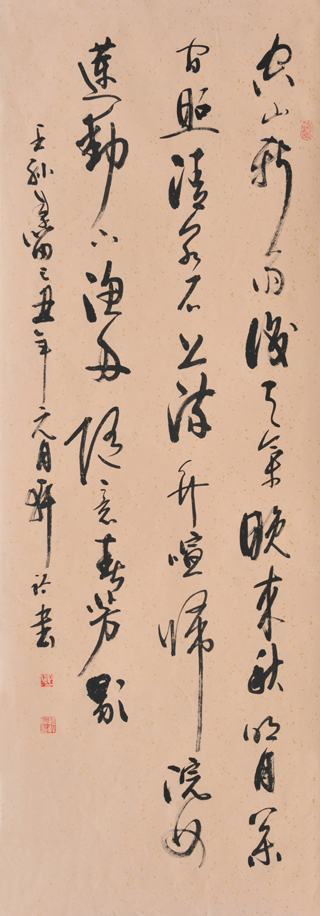 空山新雨後天氣晚來秋明月松
間照清泉石上流竹喧歸浣女
蓮動下漁舟隨意春芳歇
王孫自可留己丑年元月書